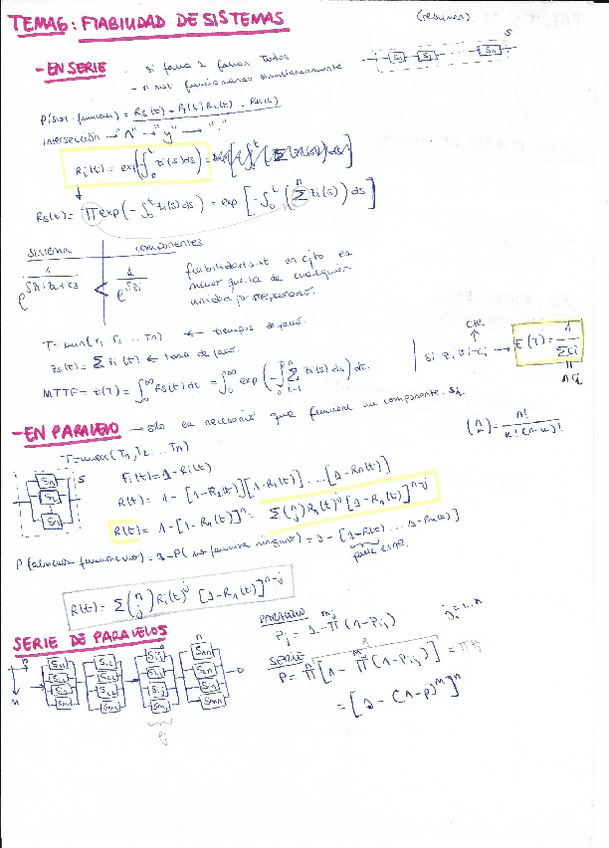 TEMA6: FIABILIDAD DE SISTEMAS
(resumen)
- EN SERIE
- si falla 1 fallan todos
- n not funcionando simultáneamente
S
S1 S2 ... Sn
P(sist. funcione) = Rs(t) = R1(t) R2(t) ... Rn(t)
intersección → "∩" → "y" → "·"
Ri(t) = exp(∫₀ᵗ zi(s)ds)
Rs(t) = Π exp(-∫₀ᵗ zi(s)ds) = exp[-∫₀ᵗ (Σ zi(s)) ds]
SISTEMA componentes
fiabilidad sist en cjto es
menor que la de cualquier
unidad por separado.
T = min(T1 T2 ... Tn) ← tiempos de fallo
Zs(t) = Σ zi(t) ← tasa de fallo
MTTF = E(T) = ∫₀^∞ Rs(t) dt = ∫₀^∞ exp(-∫₀ᵗ Σ zi(s) ds) dt.
cte.
si zi = ci → E(T) = 1/Σci
n ci
- EN PARALELO → sólo es necesario que funcione un componente. Si.
T = max(T1, T2... Tn)
(n k) = n!/(k!(n-k)!)
S
S1
S2
Sn
Fi(t) = 1 - Ri(t)
R(t) = 1 - [1-R1(t)][1-R2(t)]. ...[1-Rn(t)]
R(t) = 1 - [1-R1(t)]ⁿ = Σ(n j) R1(t)ʲ [1-R1(t)]ⁿ⁻ʲ
P(al menos funcione uno) = 1-P(no funcione ninguno) = 1 - [1-R1(t) ... 1-Rn(t)]
R(t) = Σ(n j) R1(t)ʲ [1-R1(t)]ⁿ⁻ʲ
SERIE DE PARALELOS
PARALELO
Pj = 1 - Π(1-Pij)
j = 1..n
SERIE
P = Π[1 - Π(1-Pij)] = ΠPj
= [1 - (1-p)ᵐ]ⁿ
n
m
Pj